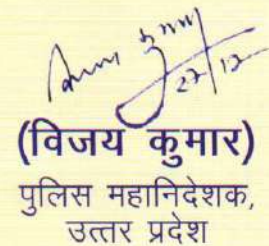 27/12
(विजय कुमार)
पुलिस महानिदेशक,
उत्तर प्रदेश